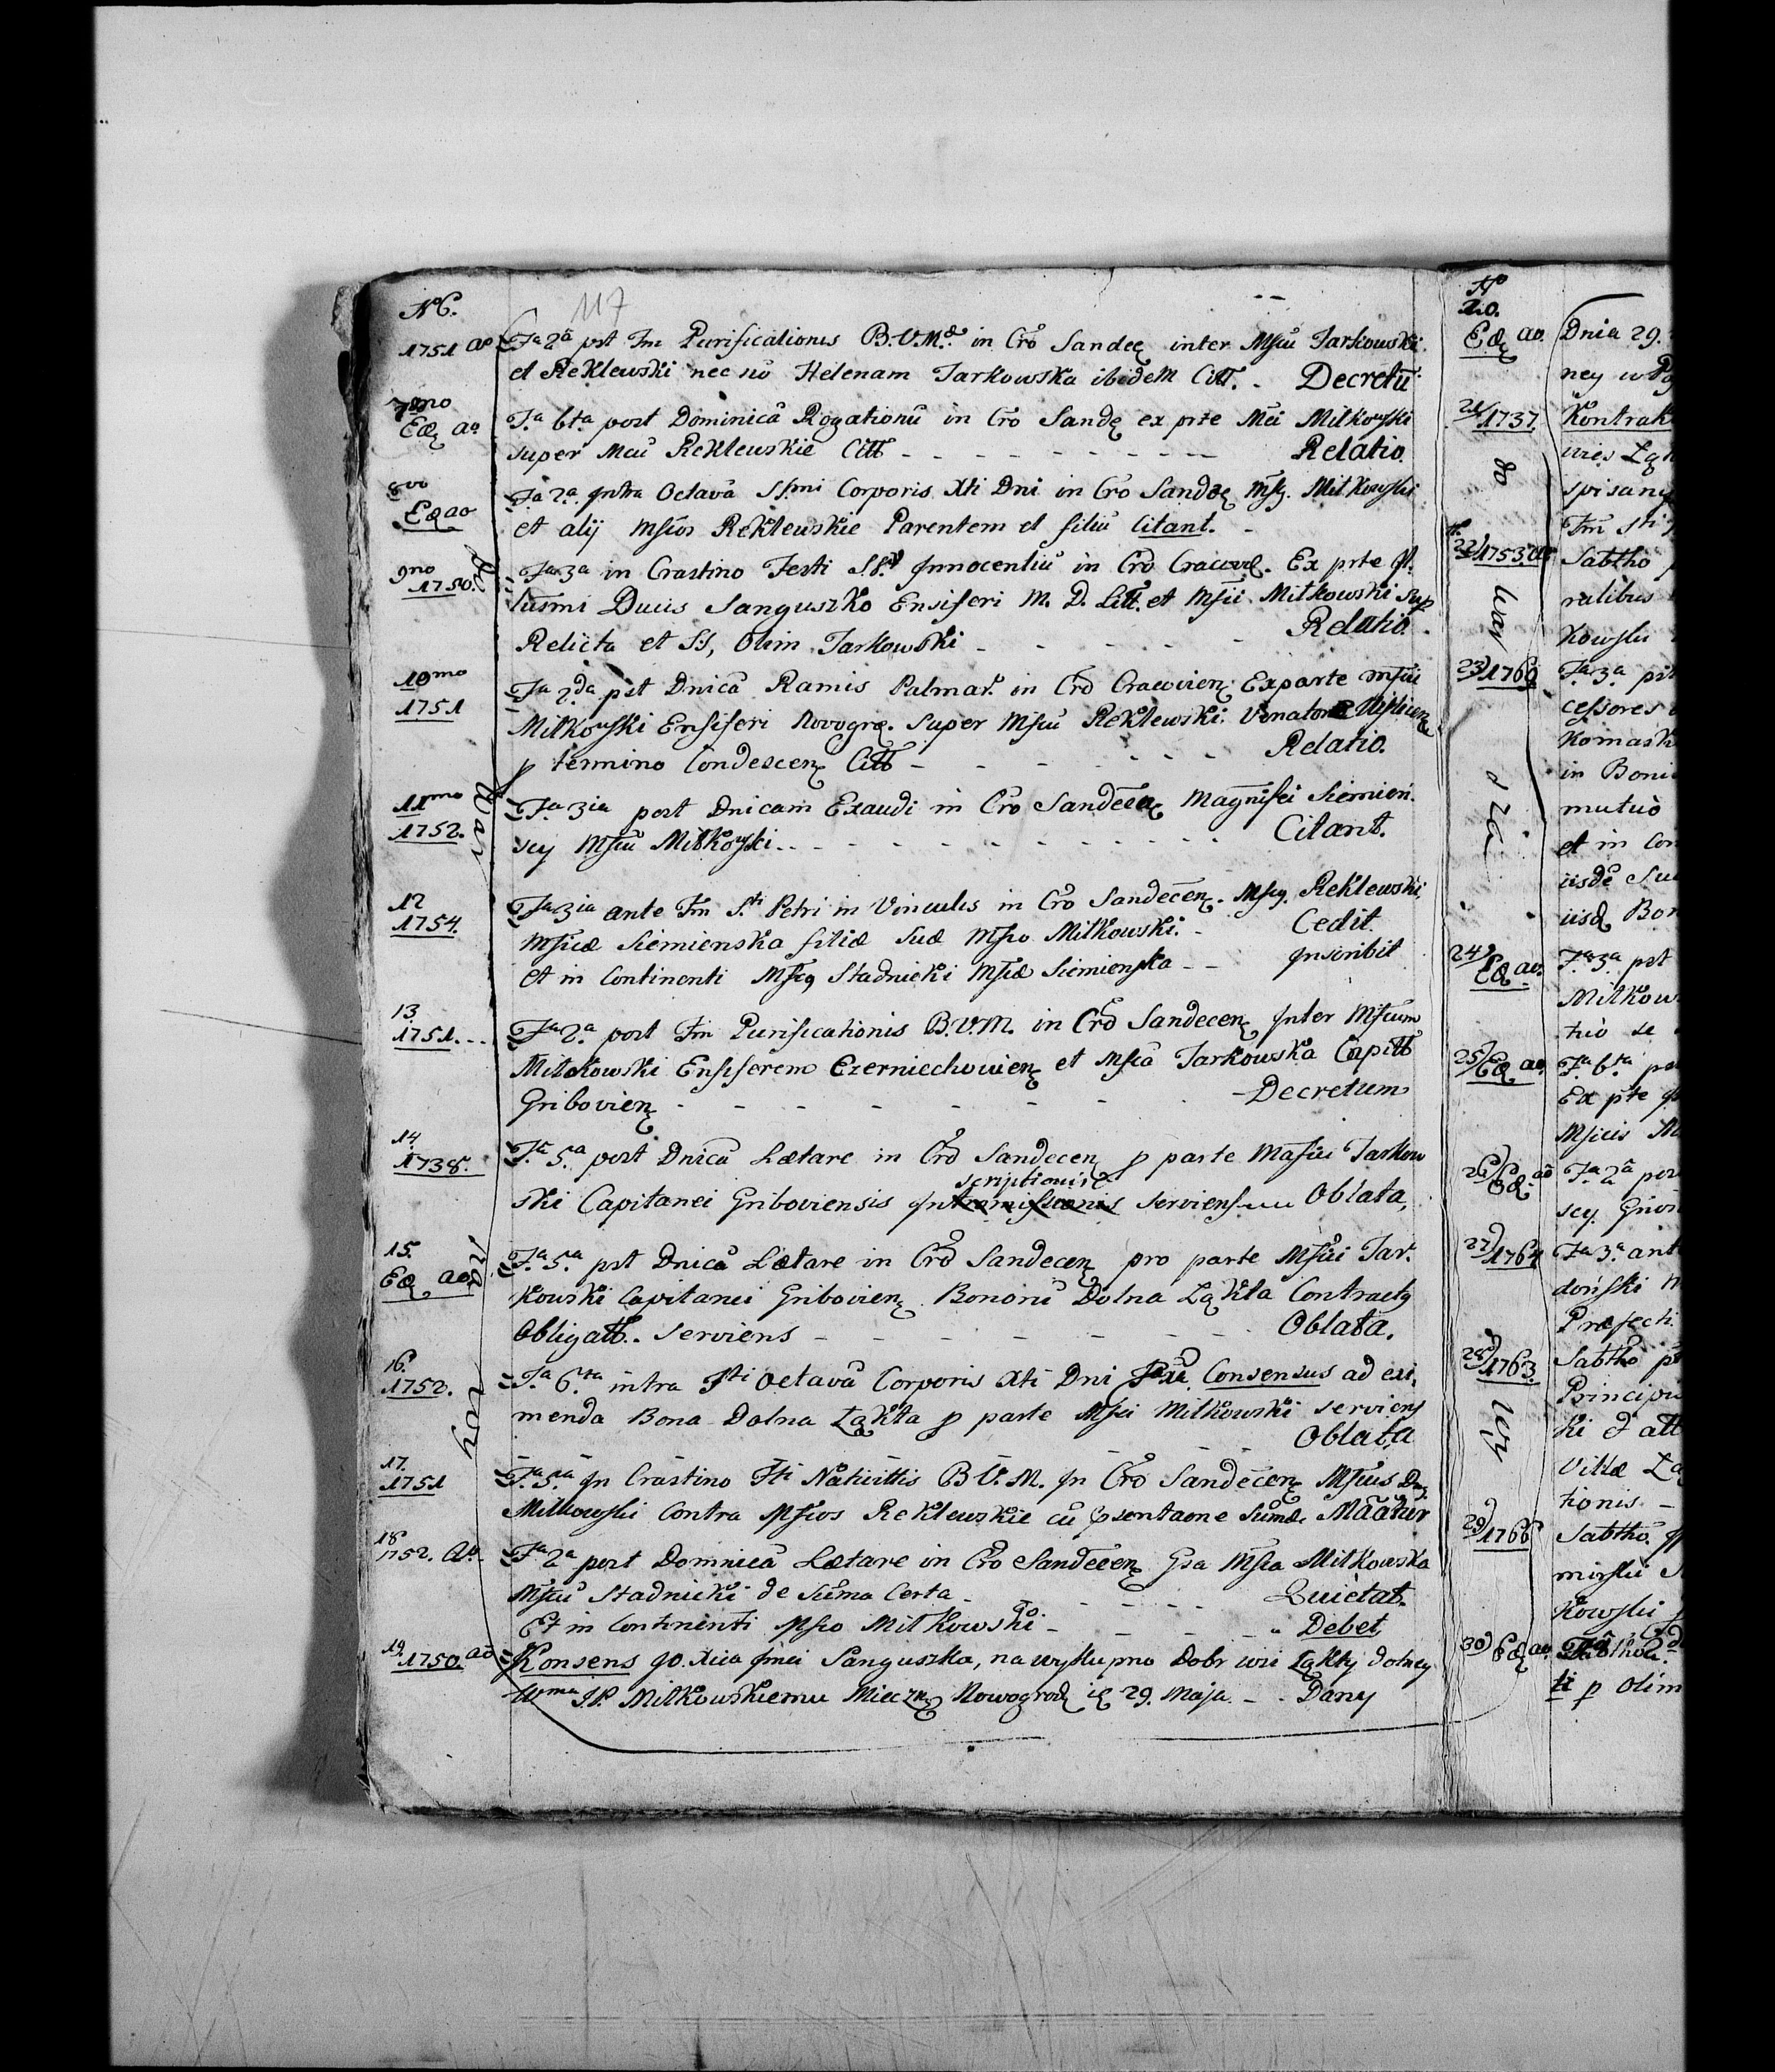 117
N 6.
1751 ao Fa 2a pst Fm Purificationis B.V.Mæ in Cro Sandec inter Mfcu Tarkowski
et Reklewski nec nō Helenam Tarkowska ibidem Citt. - Decretū
7mo
Eod ao Fa 6ta post Dominicā Rogationū in Cro Sande ex prte Mci Milkowski
super Mcū Reklewskie Citt - - - - - - - - - Relatio.
8vo
Eod ao Fa 2a intra Octavā SSmi Corporis Xti Dni in Cro Sandec Mfcg. Milkowski
et alij Mfcos Reklewskie Parentem et filiū Citant. -
9no
1750. Fa 3a in Crastino Festi SS. Innocentiū in Cro Cracovi. Ex prte Il
lusmi Ducis Sanguszko Ensiferi M. D. Litt. et Mfci Milkowski sup
Relicta et SS, Olim Tarkowski - - - - - Relatio.
10mo
1751 Fa 2da pst Dnicā Ramis Palmar. in Cro Cracovien Ex parte Mfci
Milkowski Ensiferi Novogro. Super Mfcū Reklewski Venatore Wislicen
p termino Condescen Citt - - - - - - - Relatio.
11mo
1752. Fa 3ia post Dnicam Exaudi in Cro Sandecen Magnifci Siemień.
scy Mfcū Milkowski. - - - - - - - - - - Citant.
12
1754. Fa 3ia ante Fm Sti Petri in Vinculis in Cro Sandecen. Mfcg. Reklewski
Mfcæ Siemienska filiæ suæ Mfco Milkowski. - Cedit.
et in Continenti Mfcg Stadnicki Mfcæ Siemienska - - Inscribit
13.
1751. - - Fa 2a post Fm Purificationis B.V.M. in Cro Sandecen Inter Mfcum
Milokowski Ensiferem Czerniechovien et Mfcā Tarkowska Capitt
Gribovien - - - - - - - - - Decretum
14.
1738. Fa 5a post Dnicā Lætare in Cro Sandecen p parte Mafci Tarkow
scriptionis
ski Capitanei Griboviensis Intromissionis serviens Oblata,
15.
Eod ao Fa 5a pst Dnicā Lætare in Cro Sandecen pro parte Mfci Tar.
kowski Capitanei Gribovien Bonorū Dolna Łąkta Contractg
Obligatt. serviens - - - - - - - Oblata.
16.
1752. Fa 6ta intra Fti Octavā Corporis Xti Dni Consensus ad exi,
menda Bona Dolna Łąkta p parte Mfci Milkowski serviens
Oblata
17.
1751 Fa 5a In Crastino Fti Nativittis B.V.M. In Cro Sandecen Mfcus
Milkowski Contra Mfcos Reklewskie cū psentaone Sumæ Māatur
18
1752. Ao. Fa 2a post Dominicā Lætare in Cro Sandecen Gsa Mfca Milkowska
Mfcū Stadnicki de Suma Certa - - - - - Quietat.
Et in Continenti Mfco Milkowski - - - - - Debet
19.
1750. ao Konsens JO. Xcia Jmci Sanguszka, na wykupno Dobr wsi Łąkty dolney
Wmu JP. Milkowskiemu Miecz Nowogrod 29. Maja - - Dany
Do
War
No
20.
Eod ao. Dnia 29.
ney w
21/1737. Kontrak
wieś Łąk
spisany
Fm Sti
22/1753. ao Sabtho
ralibus
kowski
23/1760 Fa 3a pst
cessores
Komask
in Boni
mutuò
et in Con
iisdē Su
iisd Bon
24/Eod ao. Fa 3a pst
Milkow
tuò se
25/Eod ao. Fa 6ta pst
Ex pte
Mfcis M
26/Eod ao Fa 2a pos
scy
27/1764 Fa 3a ant
doński
Præfecti
28/1763. Sabtho p
Principi
ki et alt
Villæ Łą
tionis -
29/1766 Sabtho.
kowski
30/Eod ao
ti p Olim